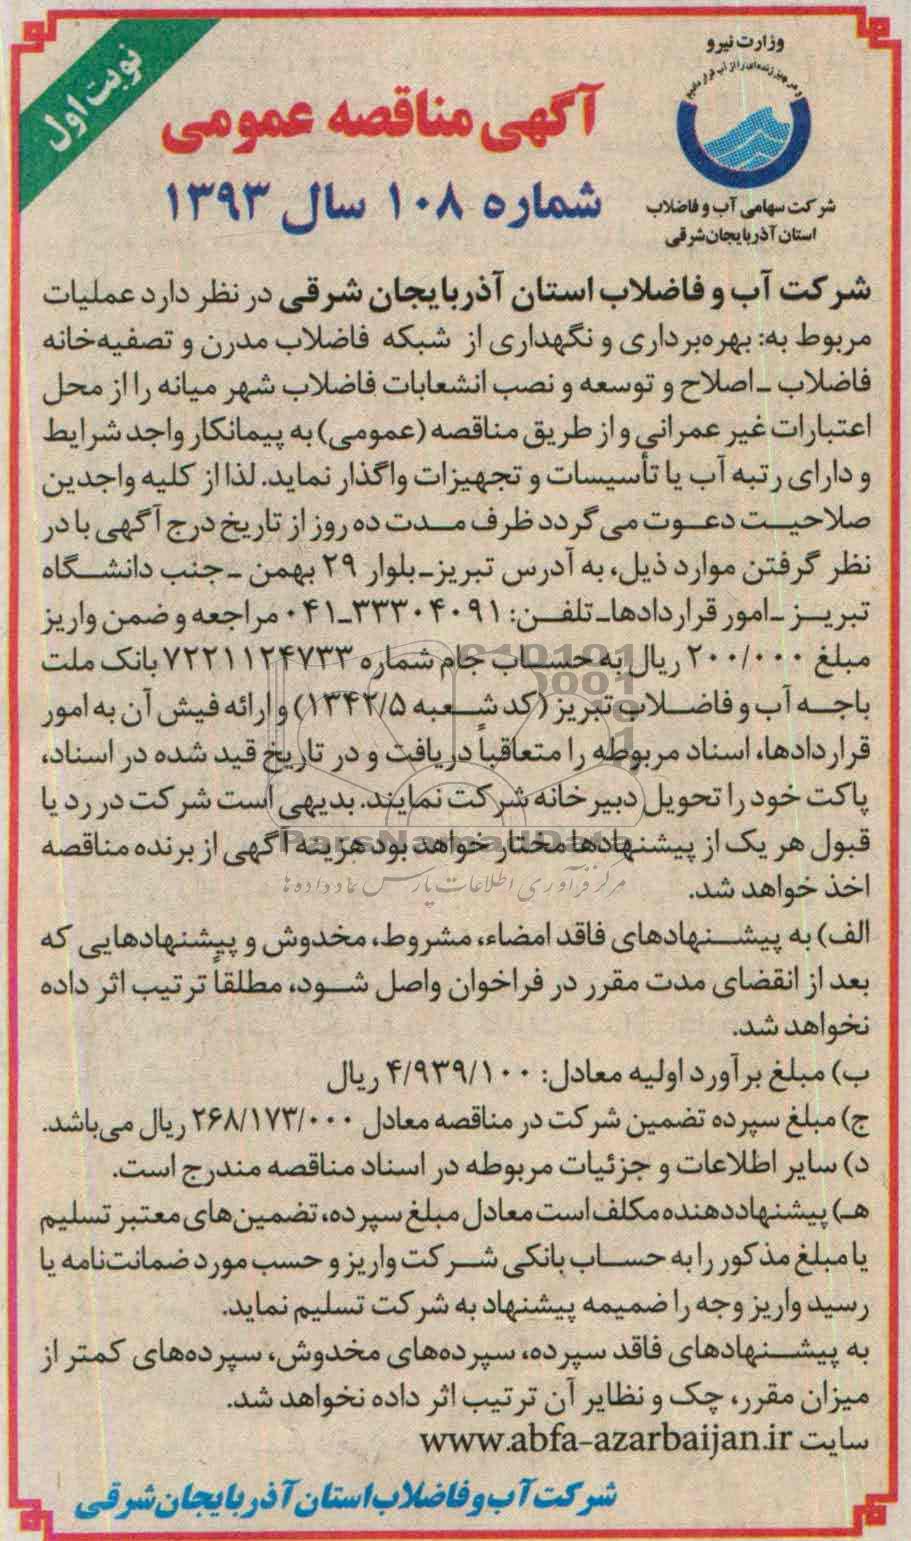 نوبت اول
وزارت نیرو
شرکت سهامی آب و فاضلاب
استان آذربایجان‌شرقی
آگهی مناقصه عمومی
شماره ۱۰۸ سال ۱۳۹۳
شرکت آب و فاضلاب استان آذربایجان شرقی در نظر دارد عملیات
مربوط به: بهره‌برداری و نگهداری از شبکه فاضلاب مدرن و تصفیه‌خانه
فاضلاب ـ اصلاح و توسعه و نصب انشعابات فاضلاب شهر میانه را از محل
اعتبارات غیر عمرانی و از طریق مناقصه (عمومی) به پیمانکار واجد شرایط
و دارای رتبه آب یا تأسیسات و تجهیزات واگذار نماید. لذا از کلیه واجدین
صلاحیت دعوت می‌گردد ظرف مدت ده روز از تاریخ درج آگهی با در
نظر گرفتن موارد ذیل، به آدرس تبریز ـ بلوار ۲۹ بهمن ـ جنب دانشگاه
تبریز ـ امور قراردادها ـ تلفن: ۳۳۳۰۴۰۹۱ـ۰۴۱ مراجعه و ضمن واریز
مبلغ ۲۰۰/۰۰۰ ریال به حساب جام شماره ۷۲۲۱۱۲۴۷۳۳ بانک ملت
باجه آب و فاضلاب تبریز (کد شعبه ۱۳۴۲/۵) و ارائه فیش آن به امور
قراردادها، اسناد مربوطه را متعاقباً دریافت و در تاریخ قید شده در اسناد،
پاکت خود را تحویل دبیرخانه شرکت نمایند. بدیهی است شرکت در رد یا
قبول هر یک از پیشنهادها مختار خواهد بود هزینه آگهی از برنده مناقصه
اخذ خواهد شد.
الف) به پیشنهادهای فاقد امضاء، مشروط، مخدوش و پیشنهادهایی که
بعد از انقضای مدت مقرر در فراخوان واصل شود، مطلقاً ترتیب اثر داده
نخواهد شد.
ب) مبلغ برآورد اولیه معادل: ۴/۹۳۹/۱۰۰ ریال
ج) مبلغ سپرده تضمین شرکت در مناقصه معادل ۲۶۸/۱۷۳/۰۰۰ ریال می‌باشد.
د) سایر اطلاعات و جزئیات مربوطه در اسناد مناقصه مندرج است.
هـ) پیشنهاددهنده مکلف است معادل مبلغ سپرده، تضمین‌های معتبر تسلیم
یا مبلغ مذکور را به حساب بانکی شرکت واریز و حسب مورد ضمانت‌نامه یا
رسید واریز وجه را ضمیمه پیشنهاد به شرکت تسلیم نماید.
به پیشنهادهای فاقد سپرده، سپرده‌های مخدوش، سپرده‌های کمتر از
میزان مقرر، چک و نظایر آن ترتیب اثر داده نخواهد شد.
سایت www.abfa-azarbaijan.ir
شرکت آب و فاضلاب استان آذربایجان شرقی
ParsNamadData
مرکز فرآوری اطلاعات پارس نماد داده‌ها